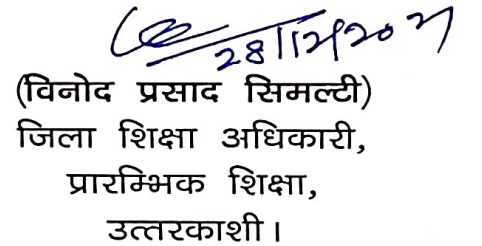 28/12/2021
(विनोद प्रसाद सिमल्टी)
जिला शिक्षा अधिकारी,
प्रारम्भिक शिक्षा,
उत्तरकाशी।